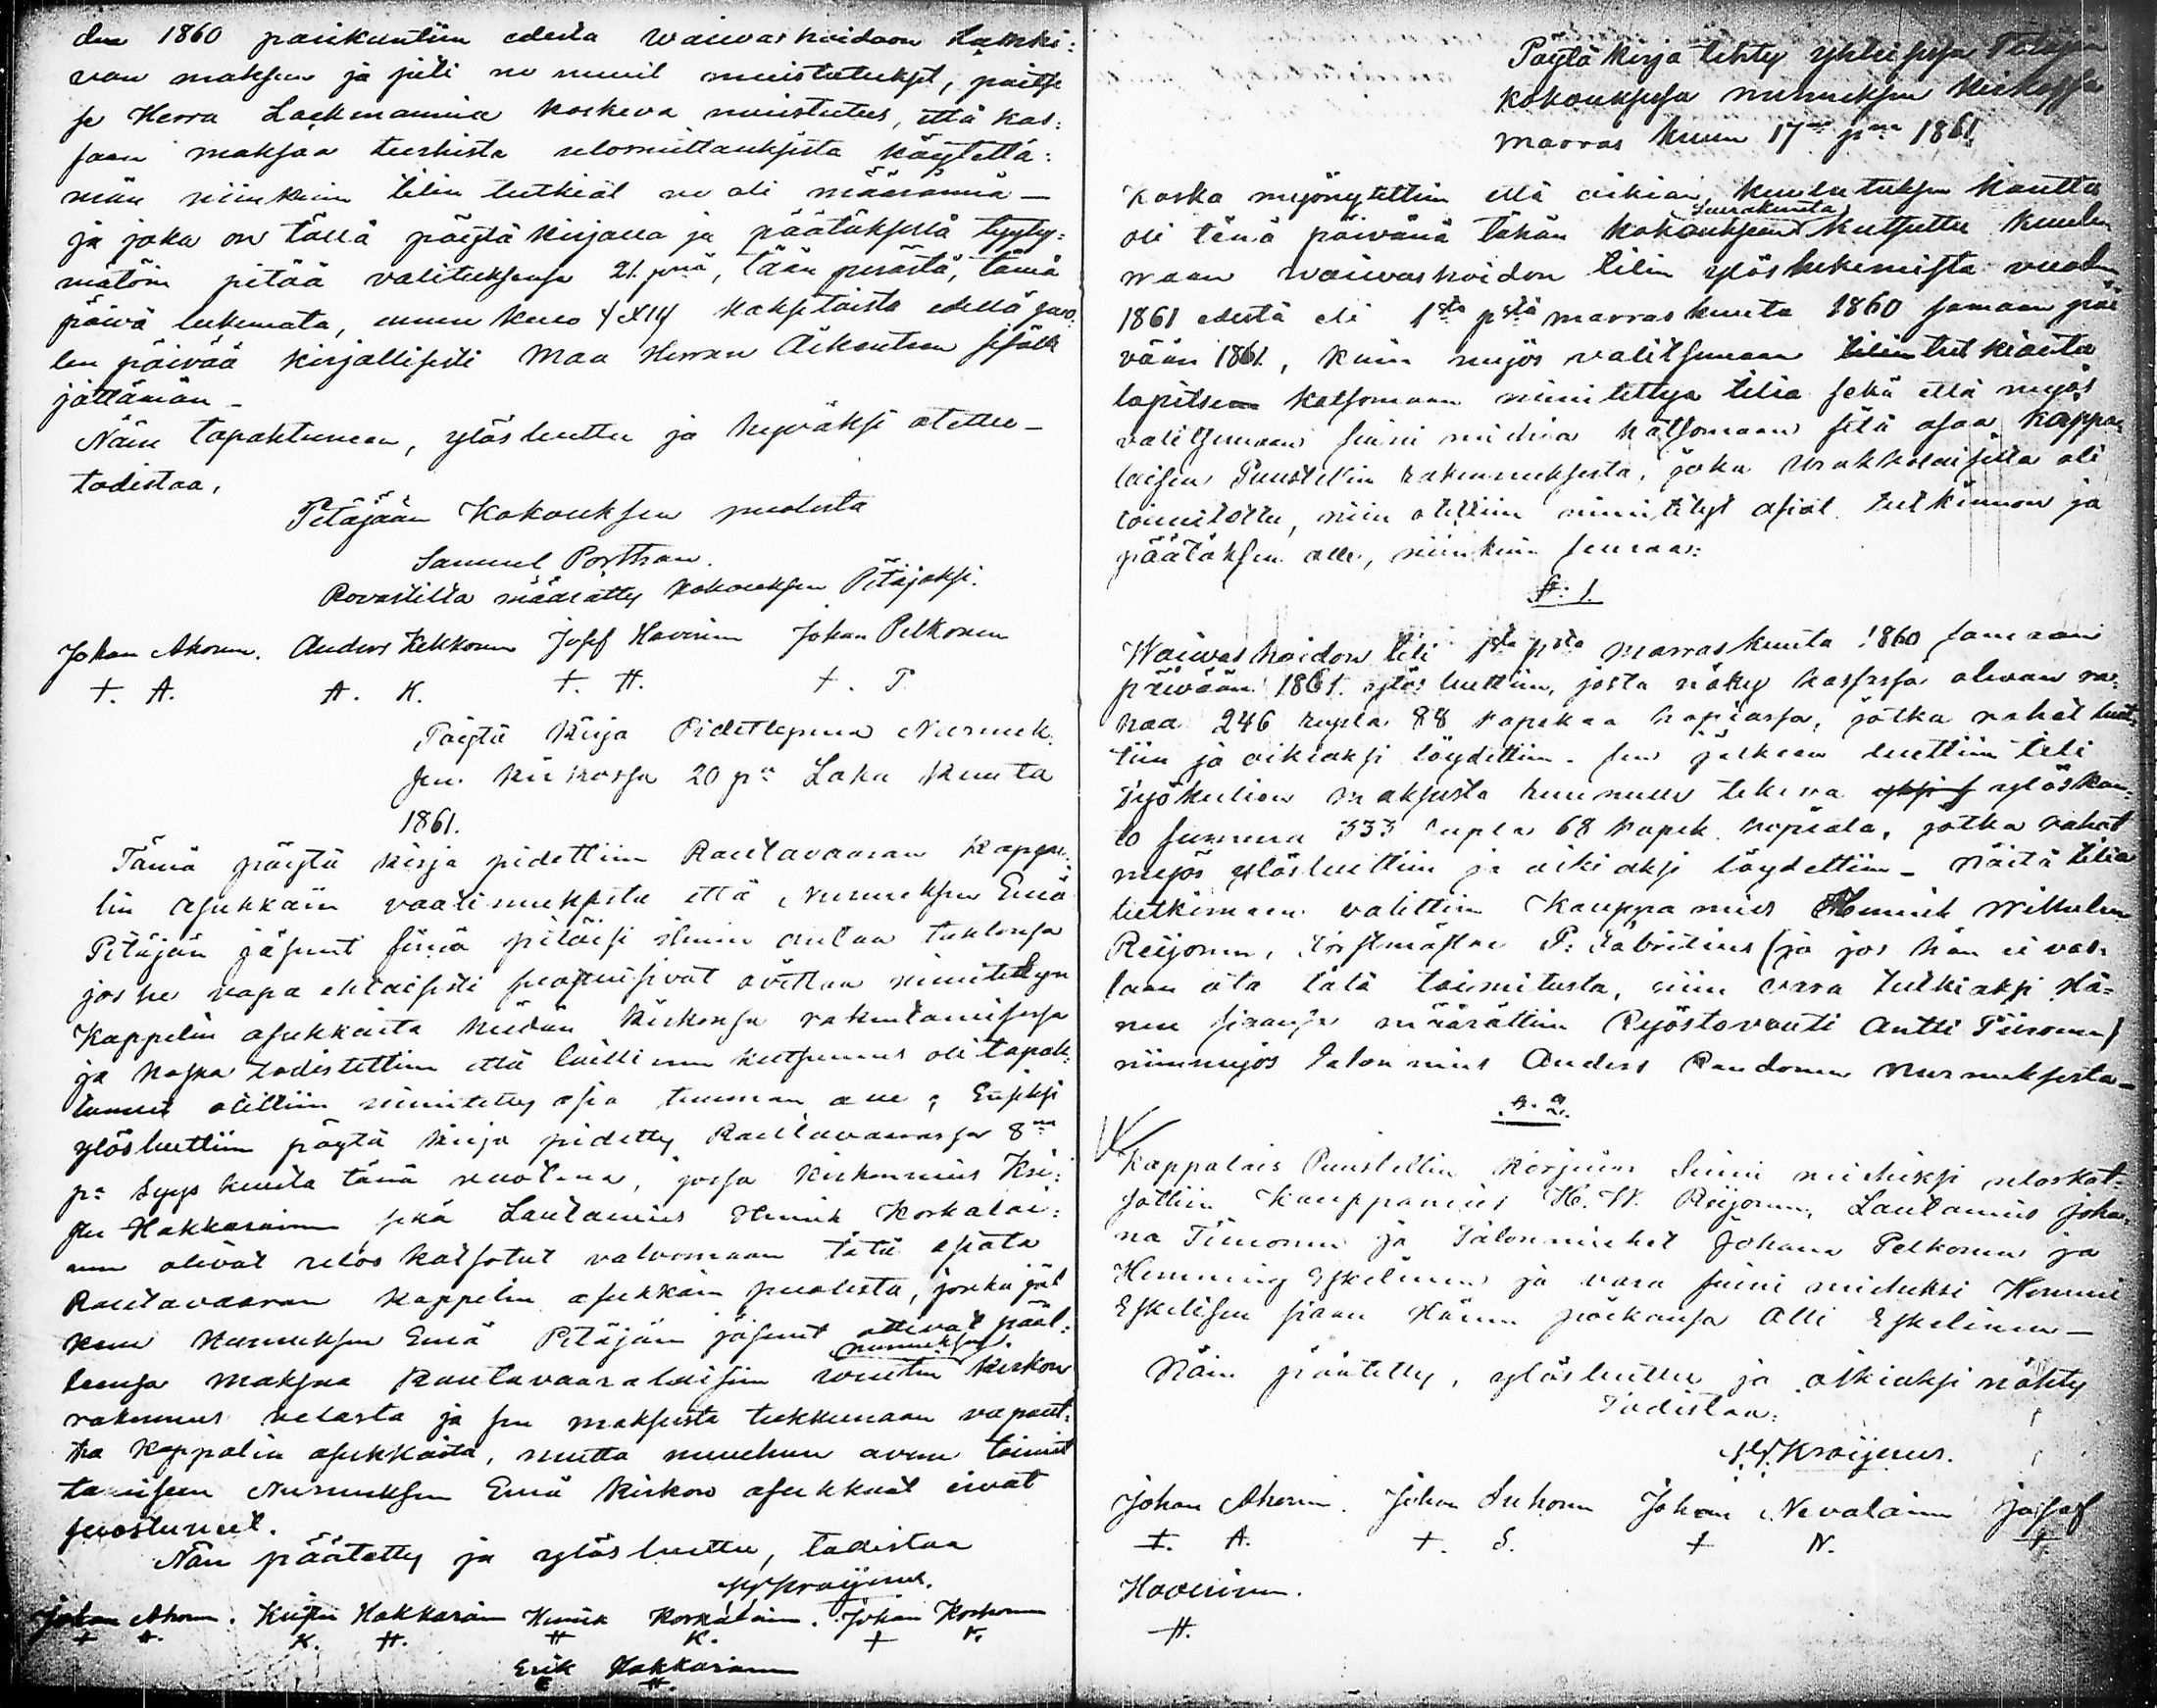 den 1860 paikuntiin edestä waiwashoidon Lanki:
van maksun ja jäti ne muut muistutukset, paitse
se Herra Laekmannia koskeva muistutus, että kas:
saan maksaa tuskista ulosmittauksista käytettä:
män niinkuin tilin tutkiat ne oli määränneä —
ja joka on tällä pöytä kirjalla ja päätöksellä tyyty:
mätöin pitää valituksensa 21. pnä, tään perästä, tämä
päivä lukemata, ennen kello 12 kaksitoista edellä puo:
len päivää kirjallisesti Maa Herran Äikonteen sisälle
jättämän —
Näin tapahtuneen, ylösluettu ja hyväksi otettu —
todistaa,
Pitäjään Kokouksen puolesta
Samuel Porthan.
Rovastilta määrätty kokouksen Pitäjäksi.
Johan Ahonen. Anders Kekkonen Josef Hoverinen Johan Pelkonen
I. A. A. K. I. H. I. P.
Pöytä kirja Pidettynä Nurmek:
sen kirkossa 20 pä Loka kuuta
1861.
Tämä pöytä kirja pidettiin Rautavaaran Kappe:
lin asukkain vaatimuksesta että Nurmeksen Emä
Pitäjän jäsenet siinä pitäisi ilmin antaa tahtonsa
jos he vapa ehtoisesti suostuisivat auttaa nimitetyn
Kappelin asukkaita heidän kirkonsa rakentamisessa
ja koska todistettiin että laillinen kutsumus oli tapah:
tunut otettiin nimitetty asia tuuman alle; Ensiksi
ylösluettiin pöytä kirja pidetty Rautavaarassa 8na
pä Syys kuuta tänä vuotena, jossa kirkonmies Kri:
stu Hakkarainen sekä Lautamies Henrik Korkalai:
nen olivat ulos katsotut valvomaan tätä asiata
Rautavaaran kappelin asukkain puolesta, jonka jäl
keen Nurmeksen Emä Pitäjän jäsenet ottivat pääl:
Nurmeksen
lensa maksaa Rautavaaralaisiin vuotin kirkon
rakennus velasta ja sen maksusta tukkunaan vapaut:
taa Kappalin asukkaita, mutta muuhun avun toimit
tamiseen Nurmeksen Emä kirkon asukkaat eivät
suostuneet.
Näin päätetty ja ylösluettu, todistaa
Kroijerus.
Johan Ahonen. Kristu Hakkarain Henrik Korkalainen. Johan Korhonen
I A. K. H. H K. I K.
Erik Hakkarainen
E H.
Pöytä kirja tehty yhteisessä Pitäjän
kokouksessa Nurmeksen kirkossa
marras kuun 17nä pnä 1861.
Koska myönnytettiin että oikian kuulutuksen kautta
Seurakunta
oli tänä päivänä tähän kokoukseen kutsuttu kuule
maan waiwashoidon tilin ylöslukemista vuoden
1861 edestä eli 1stä pstä marraskuuta 1860 samaan päi
vään 1861, kuin myös valitsemaan tilintutkioita
lapitse katsomaan nimitettyä tiliä sekä että myös
valitsemaan syyni miehiä katsomaan sitä osaa Kappa
laisen Puustellin rakennuksesta, joka urakkalaisilla oli
toimitettu, niin otettiin nimitetyt asiat tutkinnon ja
päätöksen alle, niinkuin seuraa:
§: 1.
Waiwashoidon tili 1stä pstä marraskuuta 1860 samaan
päivään 1861. ylös luettiin, josta näkyy kassassa olevan ra:
haa 246 rupla 88 kopekaa hopiassa, jotka rahat luet:
tiin ja oikiaksi löydettiin. Sen jälkeen luettiin tili
Työkulien maksusta huuneelle tekeva ylöskan:
to summa 333 rupla 68 kopek. hopiata, jotka rahat
myös ylösluettiin ja oikiaksi löydettiin — Näitä tiliä
tutkimaan valittiin Kauppamies Henrik Wilhelm
Reijonen, P: Fabritius (ja jos hän ei vas:
taan ota tätä toimitusta, niin vara tutkiaksi hä:
nen siaansa määrättiin Ryöstovouti Antti Piironen)
niinmyös Talon mies Anders Pandonen Nurmeksesta —
§. 2.
Kappalais Puustellin korjuun Syyni miehiksi uloskat:
sottiin Kauppamies H. W. Reijonen, Lautamies Joha
na Timonen ja Talonmiehet Johana Pelkonen ja
Hemming Eskelinen ja vara syyni mieheksi Hemmi
Eskelisen siaan Hänen poikansa Olli Eskelinen —
Näin päätetty, ylösluettu ja oikiaksi nähty
Todistaa:
Kroijerus.
Johan Ahonen. Johan Suhonen Johan Nevalainen Josef
I. A. I. S. I N. I
Hoverinen.
H.